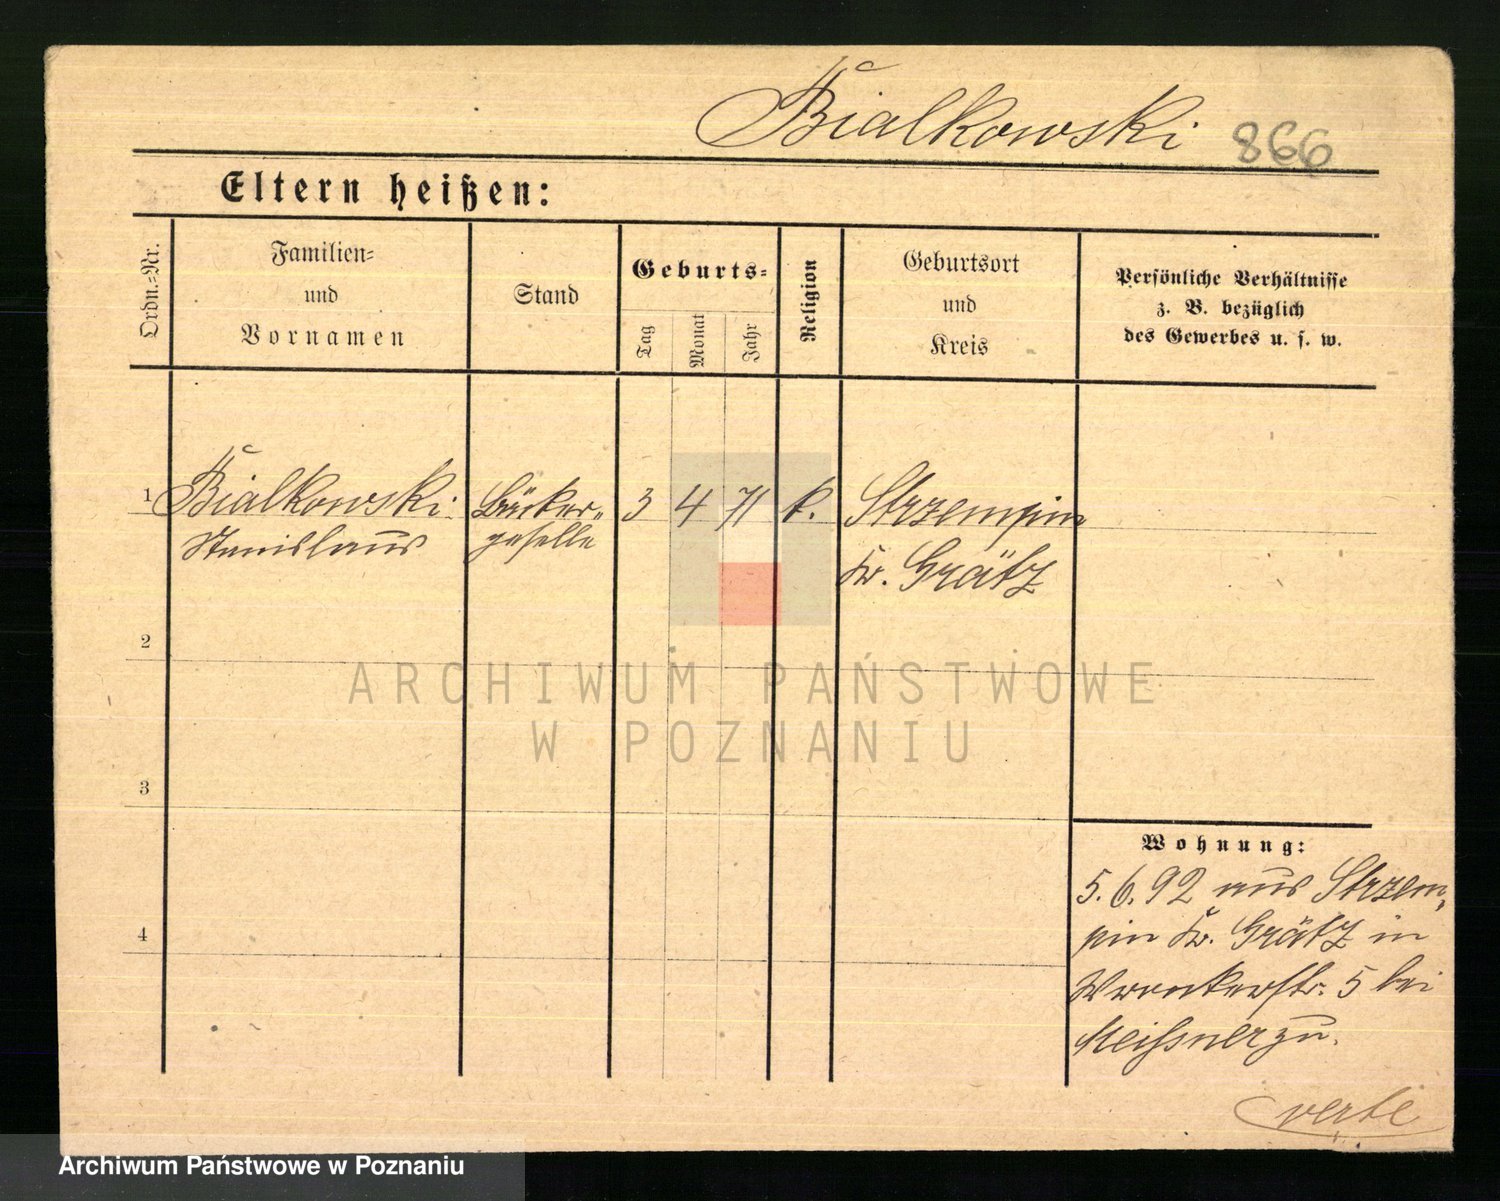 Bialkowski 866
Eltern heißen:
Ordn.=Nr.
Familien=
und
Vornamen
Stand
Geburts=
Tag
Monat
Jahr
Religion
Geburtsort
und
Kreis
Persönliche Verhältnisse
z. B. bezüglich
des Gewerbes u. s. w.
1 Bialkowski Bäcker= 3 4 71 k. Strzempin
Stanislaus geselle Kr. Grätz
2
3
4
Wohnung:
5.6.92 aus Strzem=
pin Kr. Grätz in
Wronkerstr. 5 bei
Meißner zu.
verte
ARCHIWUM PAŃSTWOWE
W POZNANIU
Archiwum Państwowe w Poznaniu